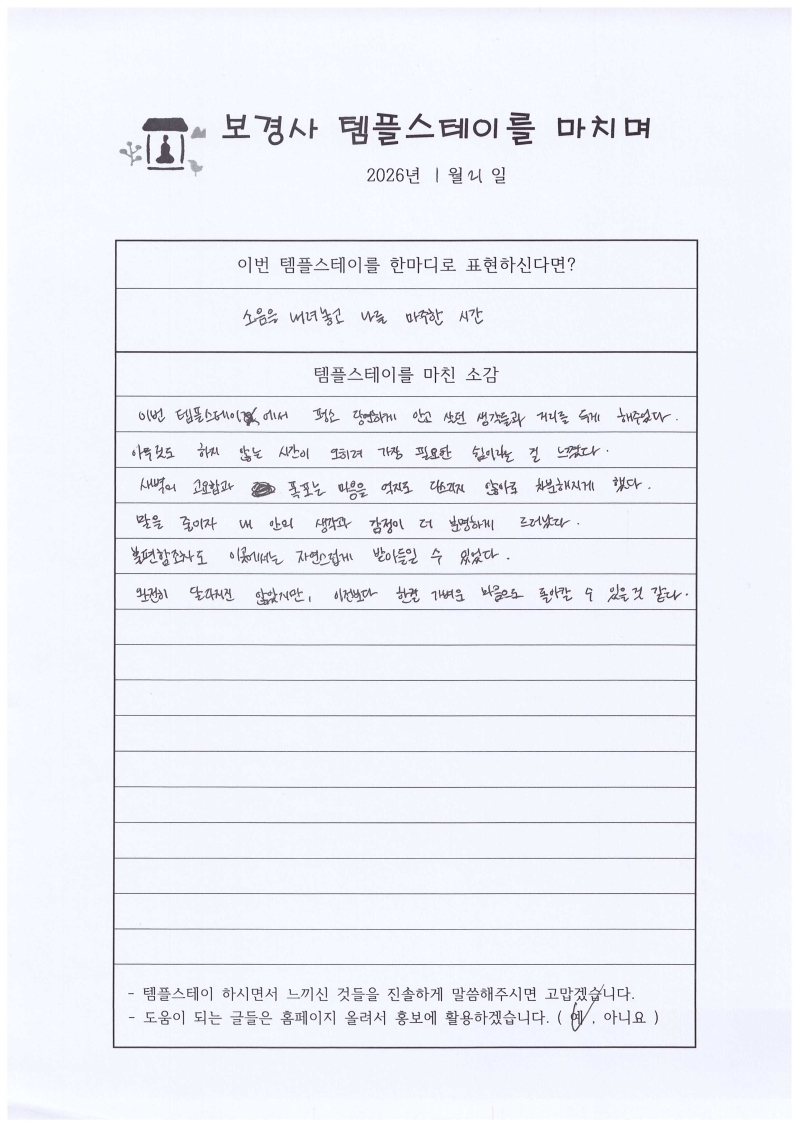 보경사 템플스테이를 마치며
2026년 1월 21일
이번 템플스테이를 한마디로 표현하신다면?
소음을 내려놓고 나를 마주한 시간
템플스테이를 마친 소감
이번 템플스테이에서 평소 당연하게 안고 살던 생각들과 거리를 두게 해주었다.
아무것도 하지 않는 시간이 오히려 가장 필요한 쉼이라는 걸 느꼈다.
새벽의 고요함과 폭포는 마음을 억지로 다스리지 않아도 차분해지게 했다.
말을 줄이자 내 안의 생각과 감정이 더 분명하게 드러났다.
불편함조차도 이곳에서는 자연스럽게 받아들일 수 있었다.
완전히 달라지진 않았지만, 이전보다 한결 가벼운 마음으로 돌아갈 수 있을 것 같다.
- 템플스테이 하시면서 느끼신 것들을 진솔하게 말씀해주시면 고맙겠습니다.
- 도움이 되는 글들은 홈페이지 올려서 홍보에 활용하겠습니다. ( 예 , 아니요 )